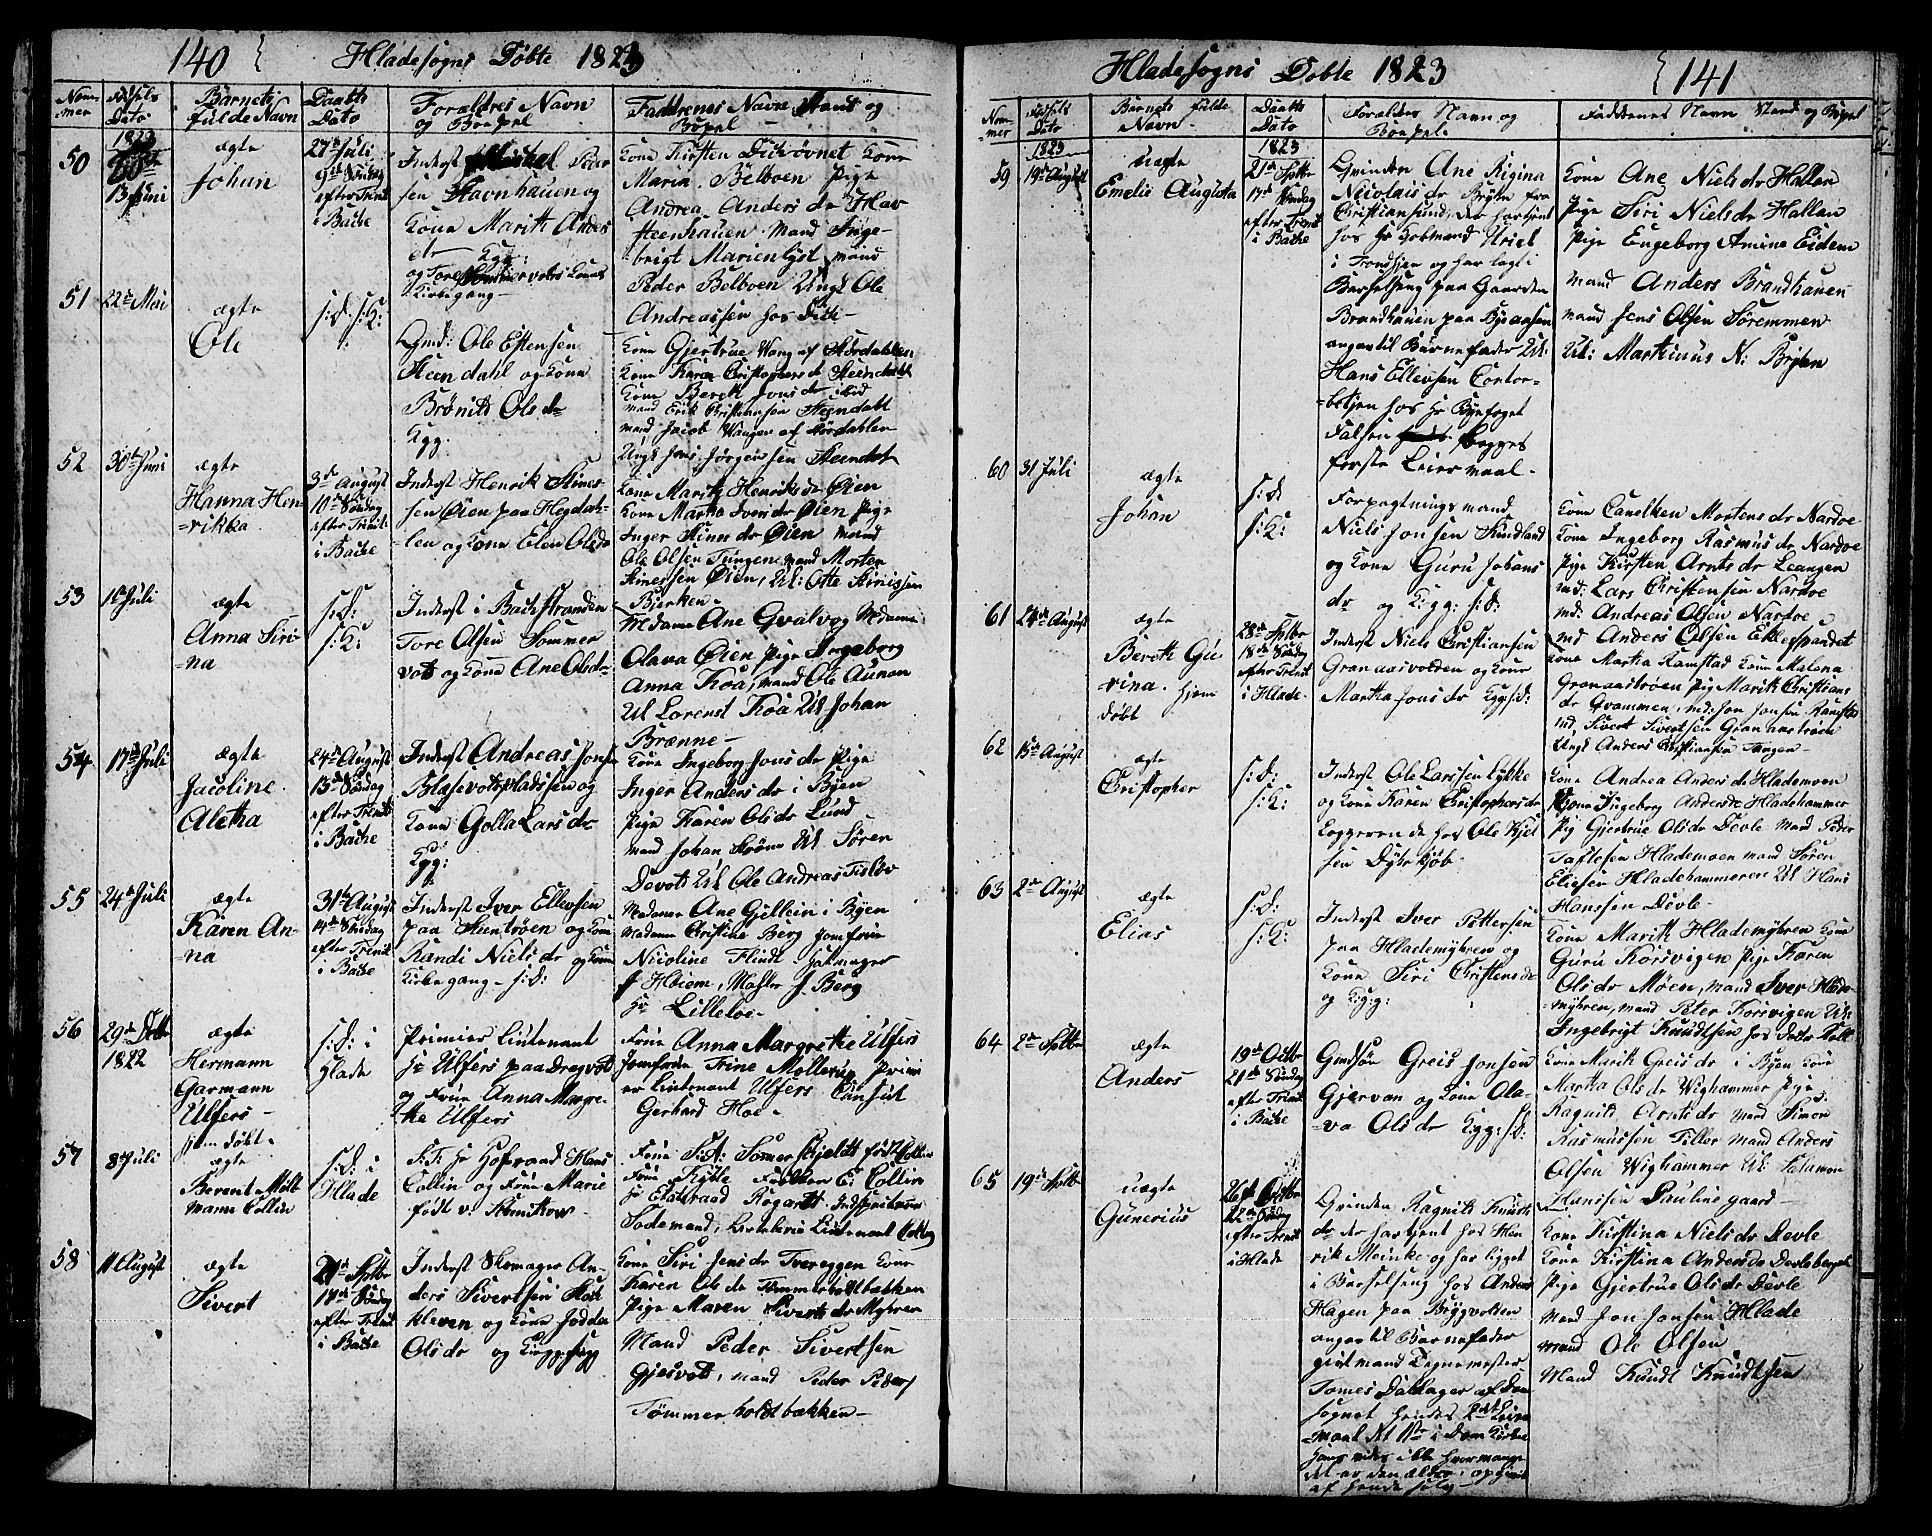 140
Hladesogns Døbte 1823
Nom-
mer
Fødsels
Dato
Barnets
fulde Navn
Daabs
Dato
Forældres Navn
og Boepæl
Faddernes Navn Stand og
Bopel
50
1823
13 Juni
ægte
Johan
27de Juli
9de Søndag
efter Trinit
i Bakke
Inderst Peder
sen Stavnhauen og
Kone Marith Anders
dr Kgg:
Kirkegang
Kone Kirsten
Maria Belboen Pige
Andrea Anders dr Hav
steenhauen Mand Inge-
brigt Marienlyst mand
Peder Belboen Ungk Ole
Andreassen hos
51
22de Mai
ægte
Ole
s: D: s: K:
Gmd: Ole Estensen
Steendahl og Kone
Brønild Ols dr
Kgg:
Kone Gjertrue Wang af Størdahlen
Kone Karen Christophers dr Steendahl
Kone Bereth Jons dr ibid
mand Erik Christensen Steendahl
mand Jacob Wangen af Størdahlen
Ungk Jens Jørgensen Steendahl
52
30te Juni
ægte
Hanna Hen-
-rikka
3de August
10de Søndag
efter Trinit
i Bakke
Inderst Henrik Stines-
sen Øien paa Hegdah-
-len og Kone Elen Olsdr
Kone Marith Henriks dr Øien
Kone Martha Ivers dr Øien Pige
Inger Stines dr Øien mand
Ole Olsen Tungen mand Morten
Stinessen Øien, Uk: Otte Stinissen
Bjerken
53
1ste Juli
ægte
Anna Siri-
-na
s: D:
s: K:
Inderst i Bachstranden
Tore Olsen Sommer
vold og Kone Ane Olsdr
Madame Ane Qvalvog Madame
Olava Øien Pige Ingeborg
Anna Koa, mand Ole Aunan
Uk Lorenst Koa Uk Johan
Brænne
54
17de Juli
ægte
Jacoline
Aletha
24de August
13de Søndag
efter Trinit
i Bakke
Inderst Andreas Jonsen
Blæsevoldspladssen og
Kone Golla Lars dr
Kgg:
Kone Ingeborg Jons dr Pige
Inger Anders dr i Byen
Pige Karen Ols dr Lund
mand Johan Strøm Uk Søren
Devold Uk Ole Andreas
55
24de Juli
ægte
Karen An-
-na
31te August
14de Søndag
efter Trinit
i Bakke
Inderst Iver Ellevsen
paa Steentrøen og Kone
Randi Niels dr og Kone
Kirkegang s: D:
Madame Ane Gjellein i Byen
Madame Christine Berg Jomfrue
Nicoline Flindt
Høiem, J. Berg
Hr Lilleloe
56
29de Decbr
1822
ægte
Hermann
Garmann
Ulfers
hjem døbt
s: D: i
Hlade
Primier Lieutenant
Hr Ulfers paa Dragvold
og Frue Anna Margre-
the Ulfers
Frue Anna Margrethe Ulfers
Jomfrue Trine Møllerup Primi
er Lieutenant Ulfers
Gerhard Hoe
57
8de Juli
ægte
Berent Molt-
mann Collin
s: D: i
Hlade
S: T: Hr Hofraad Hans
Collin og Frue Marie
født v:
Frue født Collin
Frue Frøken E: Collin
Hr Etatsraad Rogert
Lieutenant
58
11 August
ægte
Sivert
21de Septbr
17de Søndag
efter Trinit
i Bakke
Inderst Skomager An-
ders Sivertsen
kleven og Kone Jodda
Ols dr og Kirkegg
Kone Siri Jens dr Tvereggen Kone
Karen Ols dr Tømmerholdtbækken
Pige Maren Siverts dr Myhren
Mand Peder Sivertsen
Gjesvold, mand Peder Peders
Tømmerholdtbækken
Hladesogns Døbte 1823
141
Nom-
-mer
Fødsels
Dato
Barnets fulde
Navn
Daabs
Dato
Forældres Navn og
Boepæl
Faddernes Navn Stand og Bopel
59
1823
19de August
uægte
Emelie Augusta
1823
21de Septbr
17de Søndag
efter Trinit
i Bakke
Qvinden Ane Regina
Nicolais dr Bryhn fra
Christiansund, der har tjent
hos Hr Kobmand
i Trondhjem og har lagt i
Barselseng paa Gaarden
Brandhauen paa Byaasen
angav til Barnefader Uk:
Hans Ellevsen Contor-
-betjen hos Hr Byefoged
Falsen begges
første Leiermaal
Kone Ane Niels dr Hallan
Pige Siri Niels dr Hallan
Pige Engeborg Amine Eidem
mand Anders Brandhauen
mand Jens Olsen Søremmen
Uk: Martinus N: Bryhn
60
31 Juli
ægte
Johan
s: D:
s: K:
Forpagtningsmand
Niels Jonsen Sundland
og Kone Guru Johans
dr og K:gg: s: D:
Kone Canelken Mortens dr Nardoe
Kone Ingeborg Rasmus dr Nardoe
Pige Kirsten Arnts dr Leangen
md: Lars Christensen Nardoe
md: Andreas Olsen Nardoe
md Anders Olsen Eklesspandet
61
24de August
ægte
Bereth Gu
rina. hjem
døbt
28de Septbr
18de Søndag
efter Trinit
i Hlade
Inderst Niels Christiansen
Granaasvolden og Kone
Martha Jons dr Kgg s: D:
Kone Martha Ramstad Kone Malena
Granaastrøen Pig Marith Christians
dr Qvammen, md: Jon Jonsen Ramstad
md, Sivert Sivertsen Granaastrøen
Ungk Anders Christiansen Tungen
62
15de August
ægte
Christopher
s: D:
s: K:
Inderst Ole Larssen Lykke
og Kone Karen Christophers dr
Loggerende hos Ole Kjel
sen Dybekjøb
Kone Andrea Anders dr Hlademoen
Kone Ingeborg Anders dr Hladehammer
Pig Gjertrue Ols dr Devle mand Peder
Taftesen Hlademoen mand Søren
Eliesen Hladehammeren Uk Hans
Hanssen Devle
63
2de August
ægte
Elias
s: D:
s: K:
Inderst Iver Pettersen
paa Hlademyhren og
Kone Siri Christens dr
og Kgg:
Kone Marith Hlademyhren Kone
Guru Korsvigen Pige Karen
Ols dr Moen, mand Iver Hlade-
-myhren, mand Peter Korsvigen Uk:
Ingebrigt Knudtsen hos
64
2de Septbr
ægte
Anders
19de Octbr
21de Søndag
efter Trinit
i Bakke
Gmdsøn Greis Jonsen
Gjervan og Kone Ola-
-va Ols dr Kgg: s: D:
Kone Marith Greis dr i Byen Kone
Martha Ols dr Wighammer Pige
Ragnild Arnts dr mand Simon
Rasmussen Tiller mand Anders
Olsen Wighammer Uk: Salamon
Hanssen Paulinegaard
65
19de Septbr
uægte
Gunerius
26de Octbr
22de Søndag
efter Trinit
i Hlade
Qvinden Ragnild Knuds
dr der har tjent hos Hen
rik Meinke og har ligget
i Barselseng hos Anders
Hagen paa Bygvolden
angav til Barnefader
givt mand Tegnemester
Tomes Dallager af Dom
sognet hendes 2det Leier
-maal det 1ste i Dom Kirken
hans vides ikke hvor mange
det er den ældre, opgivet
af hende selv
Kone Kirstina Niels dr Devle
Kone Kirstina Anders dr Devlesbergel
Pige Gjertrue Ols dr Devle
mand Jon Jonsen Hlade
mand Ole Olsen
Mand Knudt Knudtsen